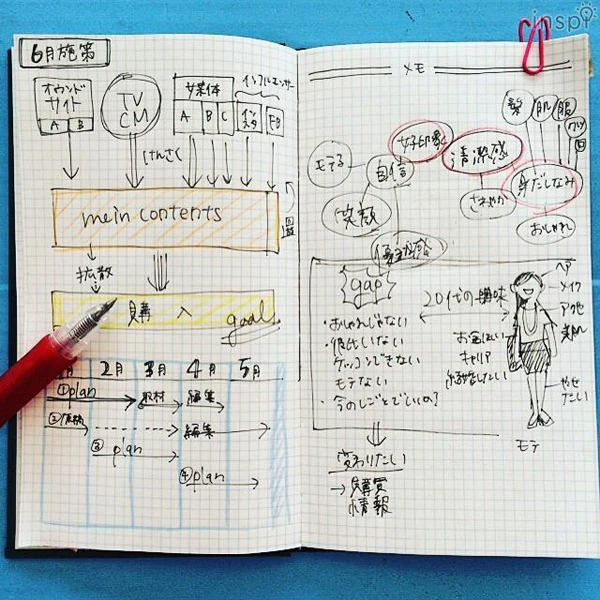 inspi
6月施策
オウンド
サイト
A B
TV
CM
媒体
A B C
インフルエンサー
インスタ
FB
けんさく
mein contents
回遊
拡散
購入
goal
月 2月 3月 4月 5月
①plan
取材
編集
②
編集
③plan
④plan
メモ
髪
肌
服
クツ
清潔感
モテる
自信
笑顔
さわやか
身だしなみ
おしゃれ
gap
20代の興味
・おしゃれじゃない
・彼氏いない
・ケッコンできない
・モテない
・今のしごとでいいの?
お金ほしい
キャリア
結婚したい
ヘア
メイク
アクセ
美肌
やせたい
モテ
変わりたい
→購買
情報